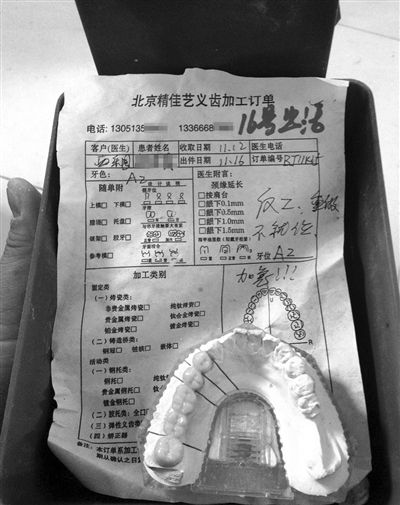 北京精佳艺义齿加工订单
电话: 1305135 1336668 16号出活
客户(医生) 患者姓名 收取日期 11.12 医生电话
出件日期 11.16 订单编号
牙色: A2 医生附言:
随单附 设计说明 颈缘延长
上模□ 下模□ □按肩台 反工,重做
□龈下0.1mm
蜡场□ 托盘□ □龈下0.5mm 不就位
□龈下1.0mm
颌架□ 咬牙□ □龈下1.5mm
参考模□ 牙位 A2
加工类别 加急!!!
固定类
(一) 烤瓷类:
非贵金属烤瓷□ 纯钛烤瓷□
贵金属烤瓷□ 钛合金烤瓷□
铂金烤瓷□ 镀金烤瓷□
(二) 铸造桩类:
钢冠□ 桩核□ 嵌体□
活动类 R
(一) 钢托类:
钢托□ 纯钛
贵金属钢托□ 钛合
镀金钢托□
(二) 胶托类: 全口
(三) 弹性义齿类
(四) 矫正器
备注: 本订单系加工
期从确认之日